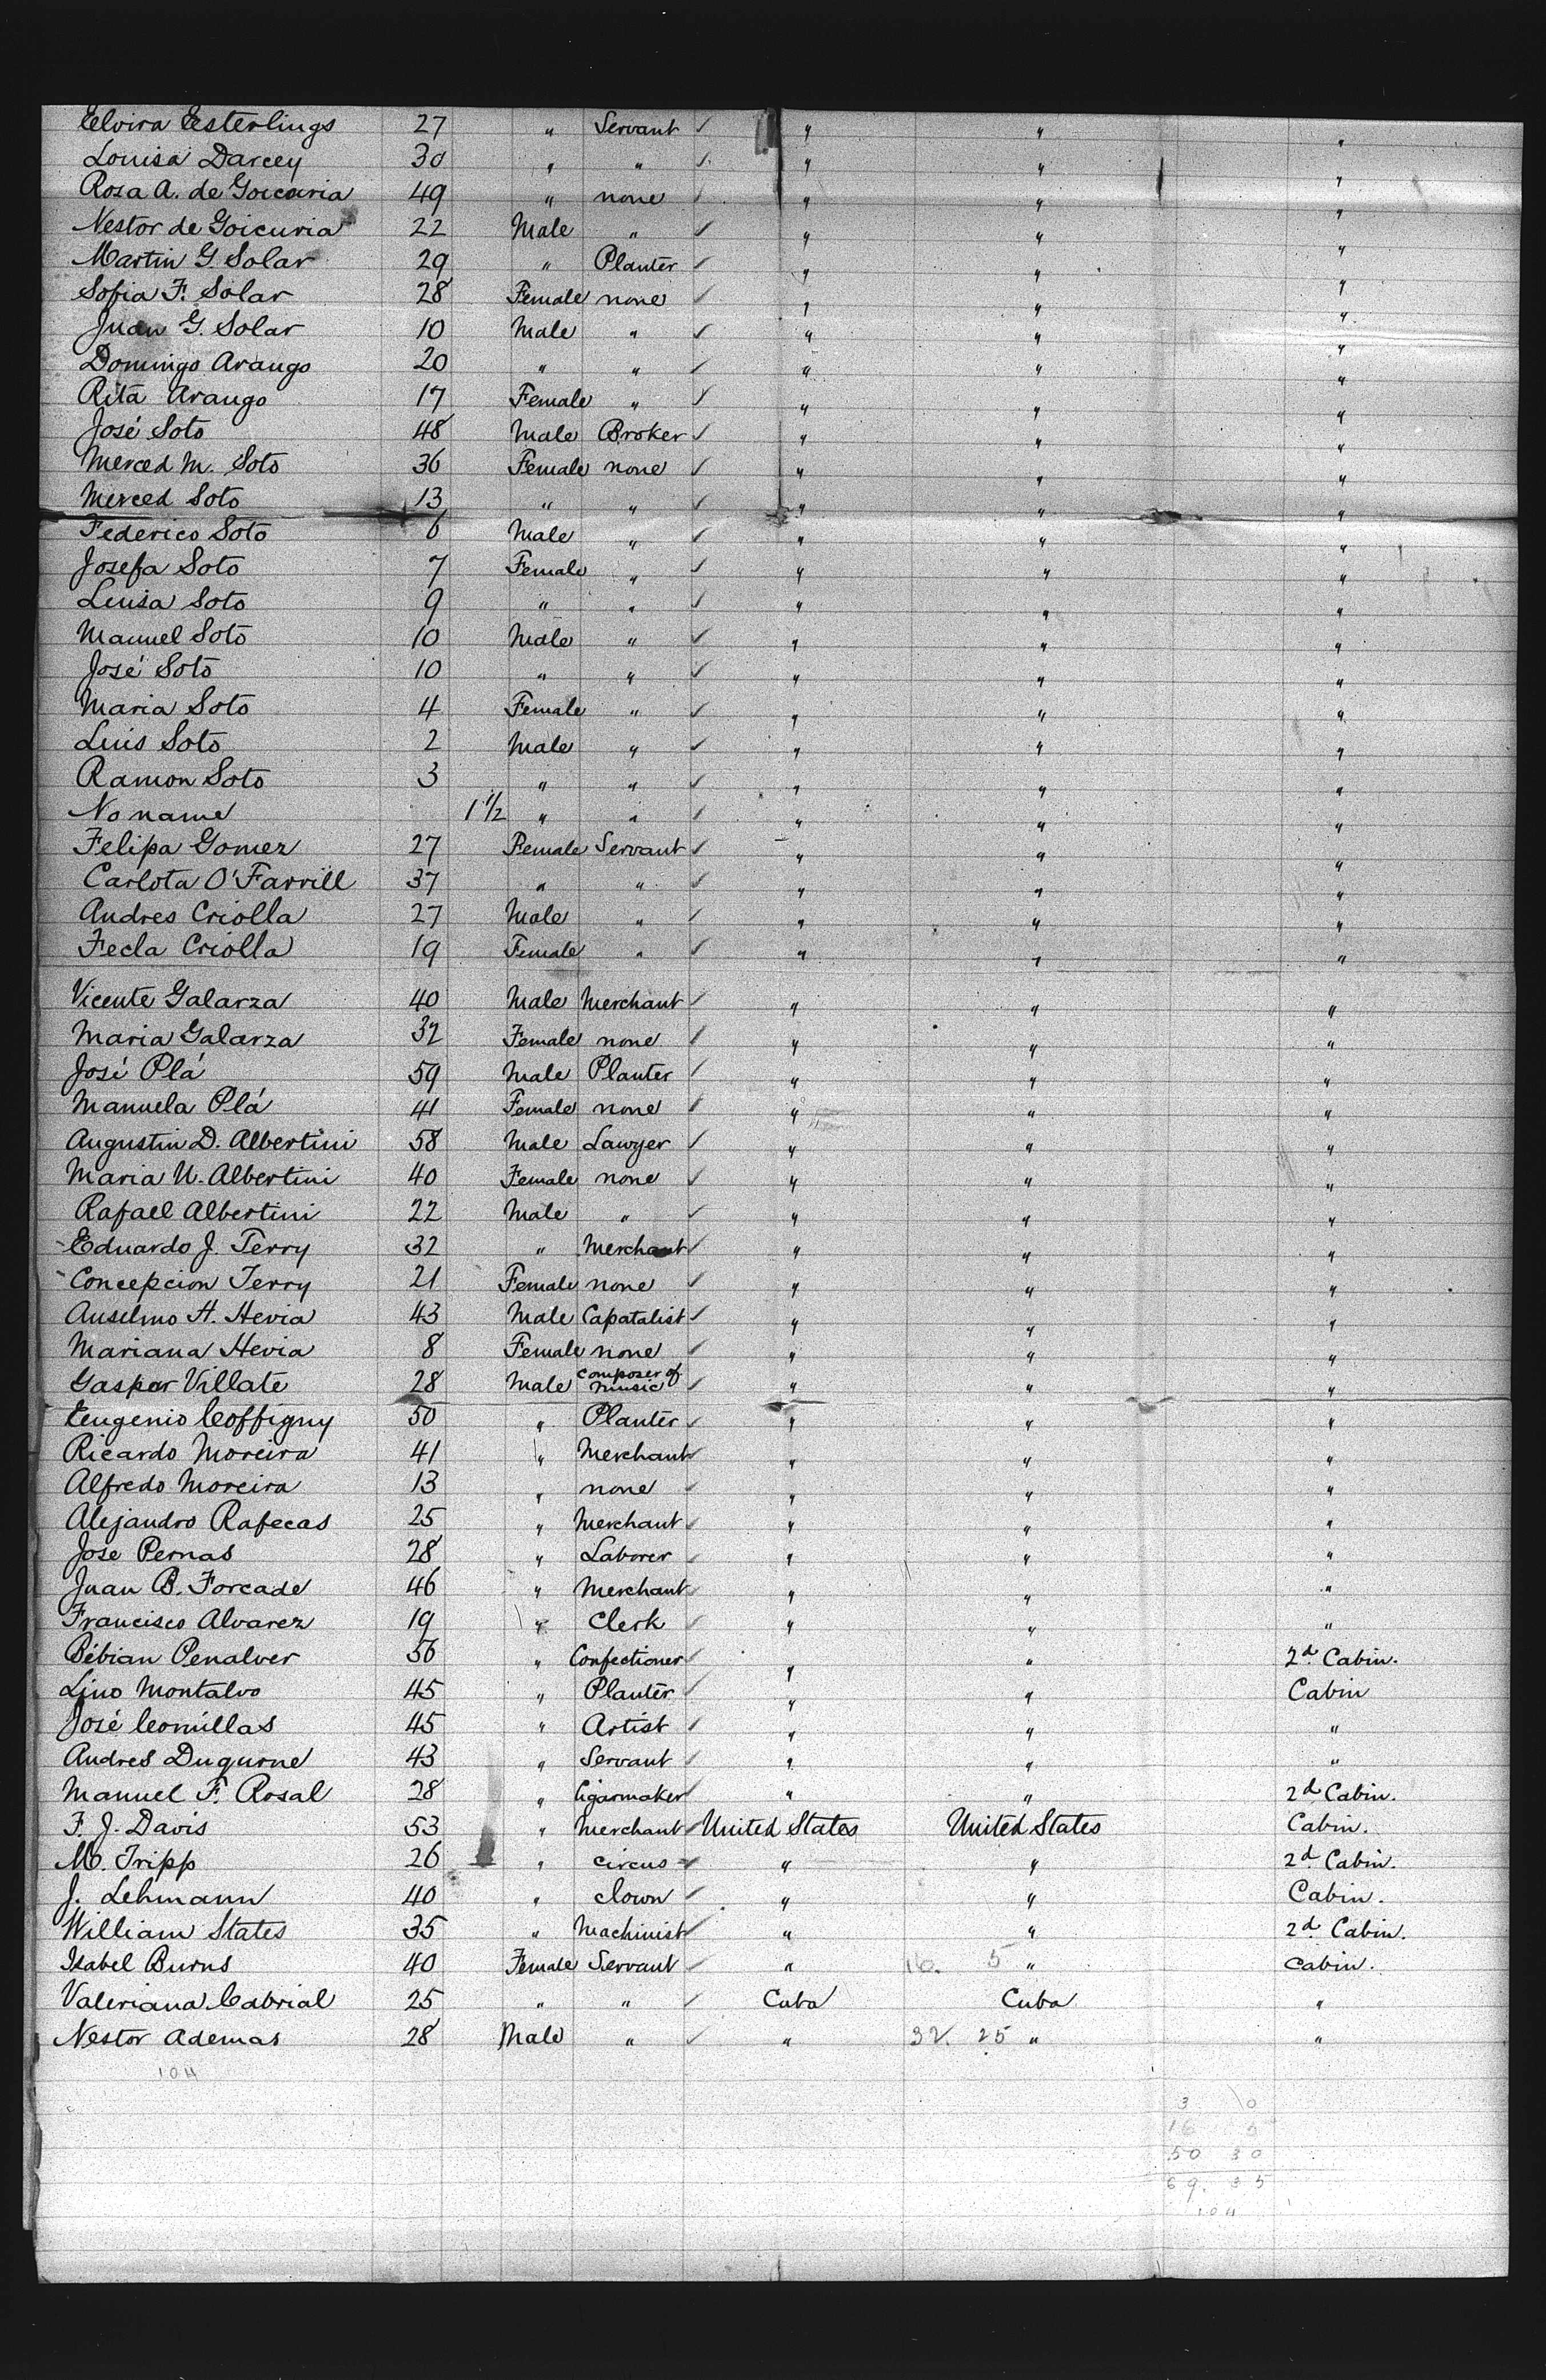 Elvira Esterlings 27 " Servant ✓ " " "
Louisa Darcey 30 " " ✓ " " "
Rosa A. de Goicuria 49 " none ✓ " " "
Nestor de Goicuria 22 Male " ✓ " " "
Martin G. Solar 29 " Planter ✓ " " "
Sofia F. Solar 28 Female none ✓ " " "
Juan G. Solar 10 Male " ✓ " " "
Domingo Arango 20 " " ✓ " " "
Rita Arango 17 Female " ✓ " " "
José Soto 48 Male Broker ✓ " " "
Merced M. Soto 36 Female none ✓ " " "
Merced Soto 13 " " ✓ " " "
Federico Soto 6 Male " ✓ " " "
Josefa Soto 7 Female " ✓ " " "
Luisa Soto 9 " " ✓ " " "
Manuel Soto 10 Male " ✓ " " "
José Soto 10 " " ✓ " " "
Maria Soto 4 Female " ✓ " " "
Luis Soto 2 Male " ✓ " " "
Ramon Soto 3 " " ✓ " " "
No name 1 1/2 " " ✓ " " "
Felipa Gomez 27 Female Servant ✓ " " "
Carlota O'Farrill 37 " " ✓ " " "
Andres Criolla 27 Male " ✓ " " "
Fecla Criolla 19 Female " ✓ " " "
Vicente Galarza 40 Male Merchant ✓ " " "
Maria Galarza 32 Female none ✓ " " "
José Plá 59 Male Planter ✓ " " "
Manuela Plá 41 Female none ✓ " " "
Augustin D. Albertini 58 Male Lawyer ✓ " " "
Maria U. Albertini 40 Female none ✓ " " "
Rafael Albertini 22 Male " ✓ " " "
Eduardo J. Terry 32 " Merchant ✓ " " "
Concepcion Terry 21 Female none ✓ " " "
Anselmo H. Hevia 43 Male Capatalist ✓ " " "
Mariana Hevia 8 Female none ✓ " " "
Gaspar Villate 28 Male composer of music ✓ " " "
Eugenio Coffigny 50 " Planter ✓ " " "
Ricardo Moreira 41 " Merchant ✓ " " "
Alfredo Moreira 13 " none ✓ " " "
Alejandro Rafecas 25 " Merchant ✓ " " "
Jose Pernas 28 " Laborer ✓ " " "
Juan B. Forcade 46 " Merchant ✓ " " "
Francisco Alvarez 19 " Clerk ✓ " " "
Bébian Penalver 56 " Confectioner ✓ " " 2d. Cabin.
Lino Montalvo 45 " Planter ✓ " " Cabin
José Comillas 45 " Artist ✓ " " "
Andres Duqurne 43 " Servant ✓ " " "
Manuel F. Rosal 28 " Cigarmaker ✓ " " 2d Cabin.
F. J. Davis 53 " Merchant ✓ United States United States Cabin.
M. Tripp 26 " circus ✓ " " 2d. Cabin.
J. Lehmann 40 " clown ✓ " " Cabin.
William States 35 " Machinist ✓ " " 2d. Cabin.
Isabel Burns 40 Female Servant ✓ " 16. 5 " Cabin.
Valeriana Cabrial 25 " " ✓ Cuba Cuba "
Nestor Ademas 28 Male " ✓ " 32. 25 " "
104
3 10
16 5
50 30
69. 35
104